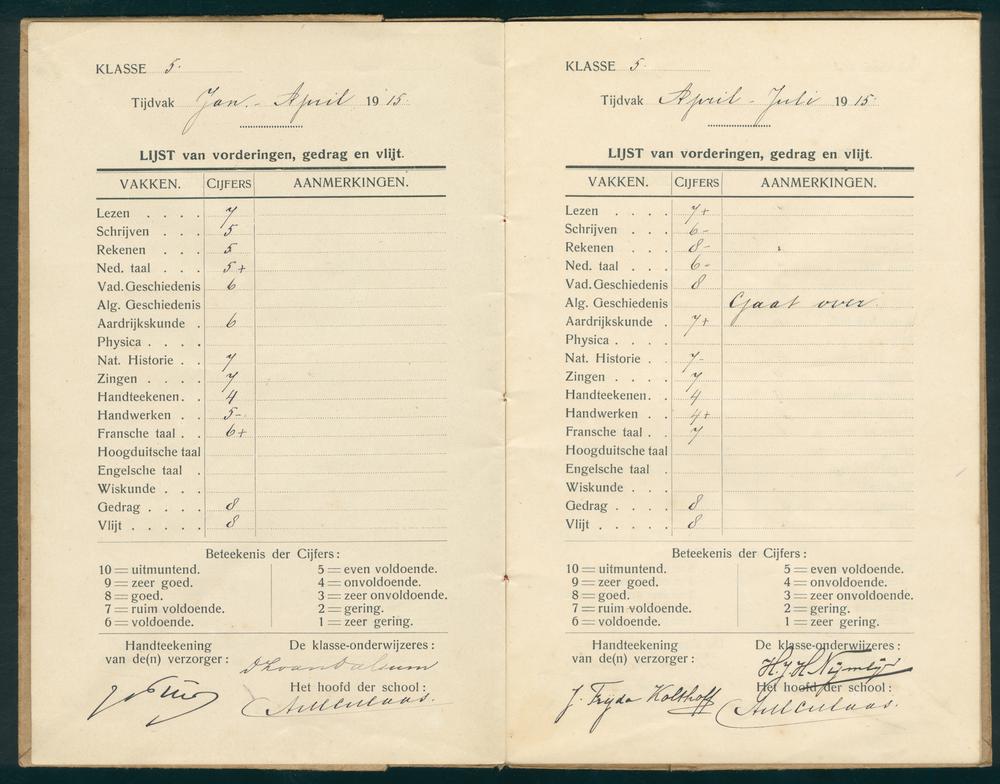 KLASSE 5.
Tijdvak Jan. - April 1915.
LIJST van vorderingen, gedrag en vlijt.
VAKKEN. CIJFERS AANMERKINGEN.
Lezen . . . . 7
Schrijven . . . 5
Rekenen . . . 5
Ned. taal . . . 5+
Vad. Geschiedenis 6
Alg. Geschiedenis
Aardrijkskunde . 6
Physica . . . .
Nat. Historie . . 7
Zingen . . . . 7
Handteekenen . . 4
Handwerken . . 5-
Fransche taal . . 6+
Hoogduitsche taal
Engelsche taal .
Wiskunde . . .
Gedrag . . . . 8
Vlijt . . . . . 8
Beteekenis der Cijfers:
10 = uitmuntend. 5 = even voldoende.
9 = zeer goed. 4 = onvoldoende.
8 = goed. 3 = zeer onvoldoende.
7 = ruim voldoende. 2 = gering.
6 = voldoende. 1 = zeer gering.
Handteekening De klasse-onderwijzeres:
van de(n) verzorger:
Het hoofd der school:
KLASSE 5.
Tijdvak April - Juli 1915.
LIJST van vorderingen, gedrag en vlijt.
VAKKEN. CIJFERS AANMERKINGEN.
Lezen . . . . 7+
Schrijven . . . 6-
Rekenen . . . 8-
Ned. taal . . . 6-
Vad. Geschiedenis 8
Alg. Geschiedenis Gaat over.
Aardrijkskunde . 7+
Physica . . . .
Nat. Historie . . 7-
Zingen . . . . 7
Handteekenen . . 4
Handwerken . . 4+
Fransche taal . . 7
Hoogduitsche taal
Engelsche taal .
Wiskunde . . .
Gedrag . . . . 8
Vlijt . . . . . 8
Beteekenis der Cijfers:
10 = uitmuntend. 5 = even voldoende.
9 = zeer goed. 4 = onvoldoende.
8 = goed. 3 = zeer onvoldoende.
7 = ruim voldoende. 2 = gering.
6 = voldoende. 1 = zeer gering.
Handteekening De klasse-onderwijzeres:
van de(n) verzorger:
Het hoofd der school:
J. Fryda Holthoff